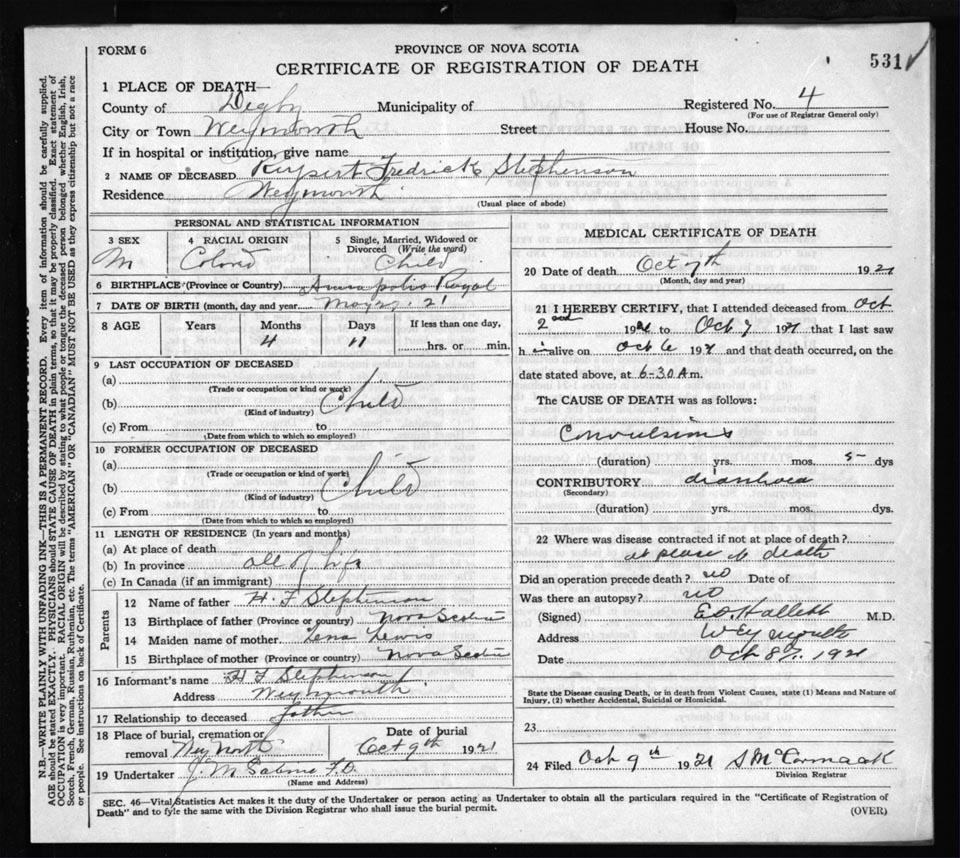 FORM 6
PROVINCE OF NOVA SCOTIA
531
CERTIFICATE OF REGISTRATION OF DEATH
1 PLACE OF DEATH—
County of Digby Municipality of Registered No. 4
(For use of Registrar General only)
City or Town Weymouth Street House No.
If in hospital or institution, give name
2 NAME OF DECEASED Rupert Fredrick Stephenson
Residence Weymouth
(Usual place of abode)
PERSONAL AND STATISTICAL INFORMATION
3 SEX M
4 RACIAL ORIGIN Colored
5 Single, Married, Widowed or Divorced (Write the word) Child
6 BIRTHPLACE (Province or Country) Annapolis Royal
7 DATE OF BIRTH (month, day and year) May 21
8 AGE Years Months Days If less than one day,
4 11 hrs. or min.
9 LAST OCCUPATION OF DECEASED
(a)
(Trade or occupation or kind of work)
(b) Child
(Kind of industry)
(c) From to
(Date from which to which so employed)
10 FORMER OCCUPATION OF DECEASED
(a)
(Trade or occupation or kind of work)
(b) Child
(Kind of industry)
(c) From to
(Date from which to which so employed)
11 LENGTH OF RESIDENCE (In years and months)
(a) At place of death
(b) In province all of Life
(c) In Canada (if an immigrant)
Parents
12 Name of father H. F Stephenson
13 Birthplace of father (Province or country) Nova Scotia
14 Maiden name of mother Lena Lewis
15 Birthplace of mother (Province or country) Nova Scotia
16 Informant's name H F Stephenson
Address Weymouth
17 Relationship to deceased father
18 Place of burial, cremation or removal Wey North
Date of burial Oct 9th 1921
19 Undertaker J. M
(Name and Address)
MEDICAL CERTIFICATE OF DEATH
20 Date of death Oct 7th 1921
(Month, day and year)
21 I HEREBY CERTIFY, that I attended deceased from Oct
2nd 1921 to Oct 7 1921 that I last saw
him alive on Oct 6 1921 and that death occurred, on the
date stated above, at 6-30 A m.
The CAUSE OF DEATH was as follows:
Convulsions
(duration) yrs. mos. 5 dys
CONTRIBUTORY diarrhoea
(Secondary)
(duration) yrs. mos. dys.
22 Where was disease contracted if not at place of death?
at place of death
Did an operation precede death? no Date of
Was there an autopsy? no
(Signed) E O Hallett M.D.
Address Weymouth
Date Oct 8th 1921
State the Disease causing Death, or in death from Violent Causes, state (1) Means and Nature of
Injury, (2) whether Accidental, Suicidal or Homicidal.
23
24 Filed Oct 9th 1921 S McCormack
Division Registrar
SEC. 46—Vital Statistics Act makes it the duty of the Undertaker or person acting as Undertaker to obtain all the particulars required in the "Certificate of Registration of
Death" and to fyle the same with the Division Registrar who shall issue the burial permit.
(OVER)
N.B.—WRITE PLAINLY WITH UNFADING INK—THIS IS A PERMANENT RECORD. Every item of information should be carefully supplied.
AGE should be stated EXACTLY. PHYSICIANS should STATE CAUSE OF DEATH in plain terms, so that it may be properly classified. Exact statement of
OCCUPATION is very important. RACIAL ORIGIN will be described by stating to what people or tongue the deceased person belonged whether English, Irish,
Scotch, French, German, Russian, Ruthenian, etc. The terms "AMERICAN" OR "CANADIAN" MUST NOT BE USED as they express citizenship but not a race
or people. See instructions on back of Certificate.